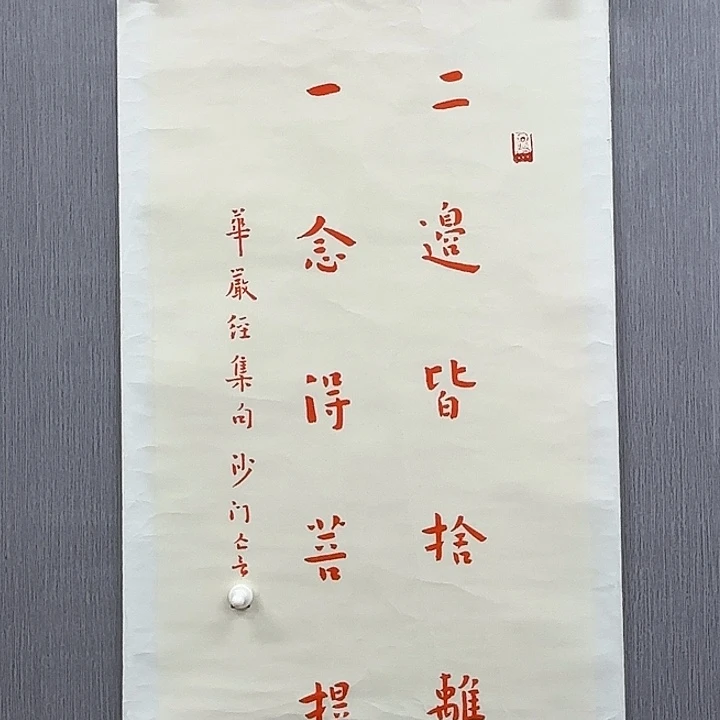 二邊皆捨離
一念得菩提
華嚴経集句沙门亼言